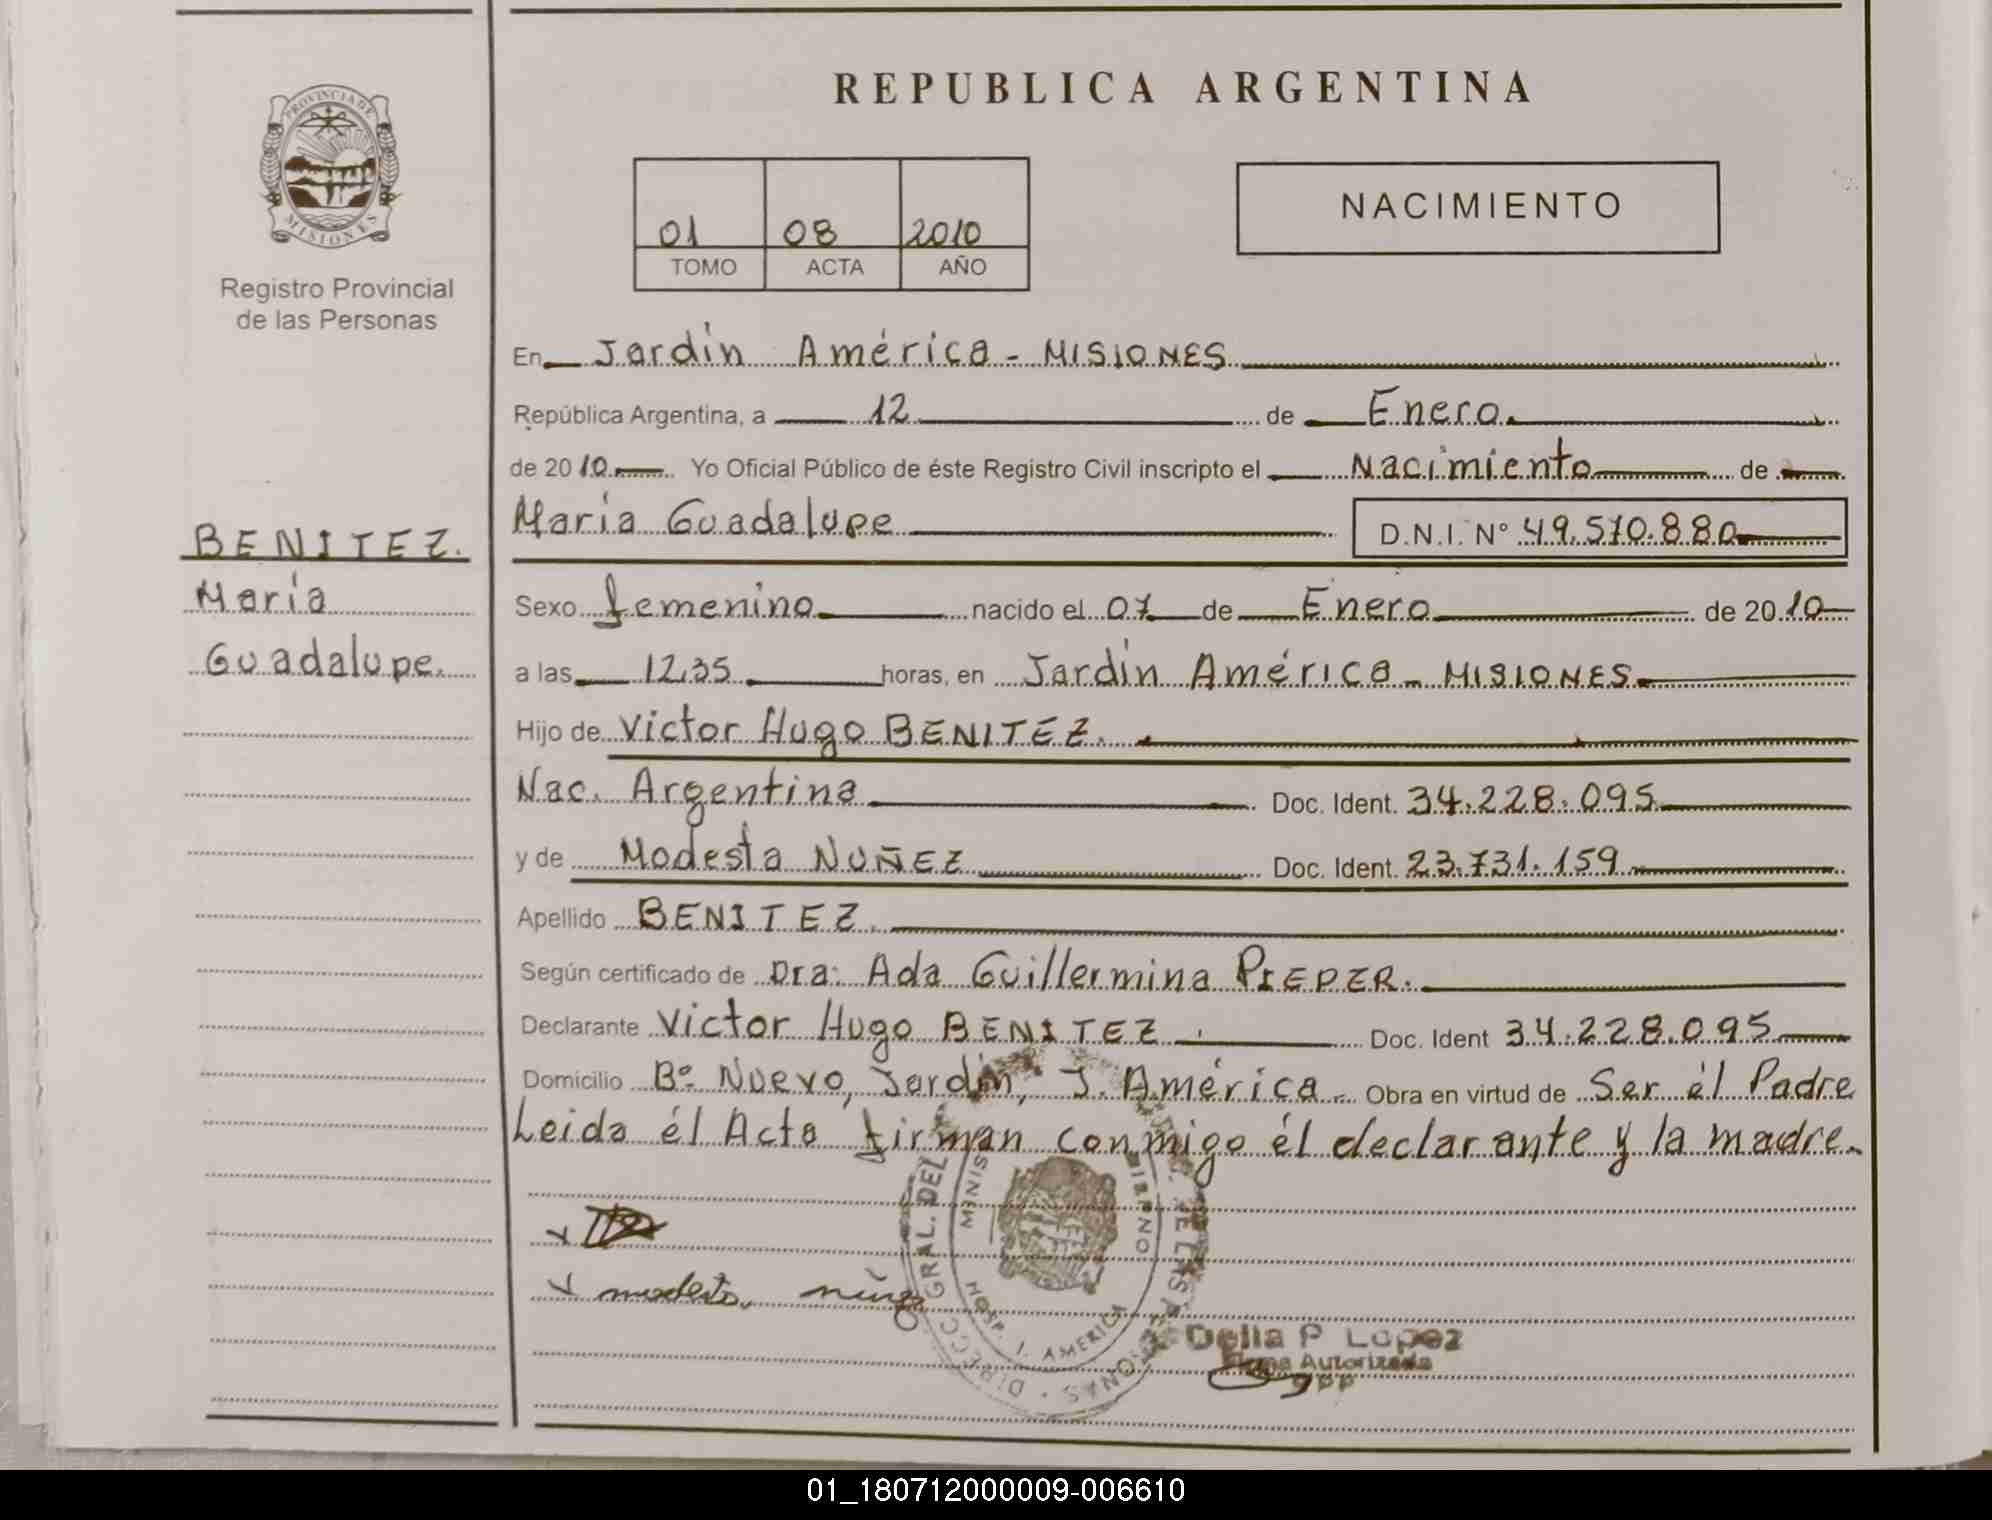 PROVINCIA DE
MISIONES
Registro Provincial
de las Personas
BENITEZ.
María
Guadalupe.
REPUBLICA ARGENTINA
01 08 2010
TOMO ACTA AÑO
NACIMIENTO
En Jardín América - MISIONES
República Argentina, a 12 de Enero.
de 2010 Yo Oficial Público de éste Registro Civil inscripto el Nacimiento de
María Guadalupe D.N.I. N° 49.570.880
Sexo femenino nacido el 07 de Enero de 2010
a las 12,35 horas, en Jardín América - MISIONES
Hijo de Victor Hugo BENITEZ.
Nac. Argentina Doc. Ident. 34.228.095
y de Modesta NUÑEZ Doc. Ident. 23.731.159
Apellido BENITEZ.
Según certificado de Dra: Ada Guillermina PIEPER.
Declarante Victor Hugo BENITEZ. Doc. Ident 34.228.095
Domicilio B° Nuevo, Jardín, J. América - Obra en virtud de Ser él Padre
Leida él Acta firman conmigo él declarante y la madre.
DIRECC GRAL. DEL
HOSP. J. AMERICA
Delia P Lopez
Firma Autorizada
RPP
01_180712000009-006610